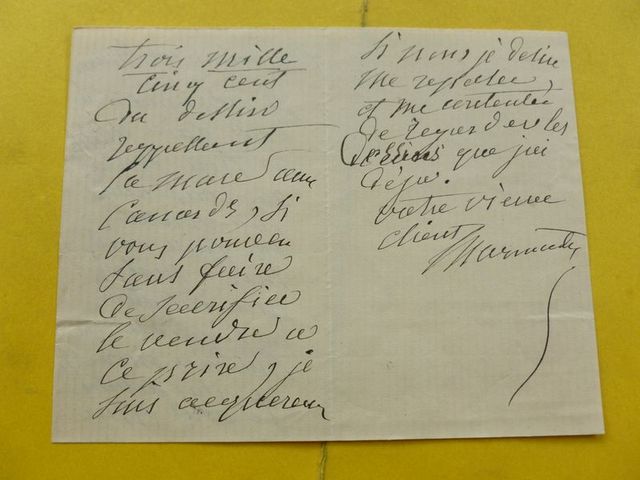 trois mille
cinq cent
du dessin
rappellant
la mare aux
Canards, si
vous pouvez
sans faire
de sacrifice
le vendre a
ce prix, je
suis acquereur
Si non, je desire
me reposer,
et me contenter
de regarder les
dessins que j'ai
déja.
votre vieux
client